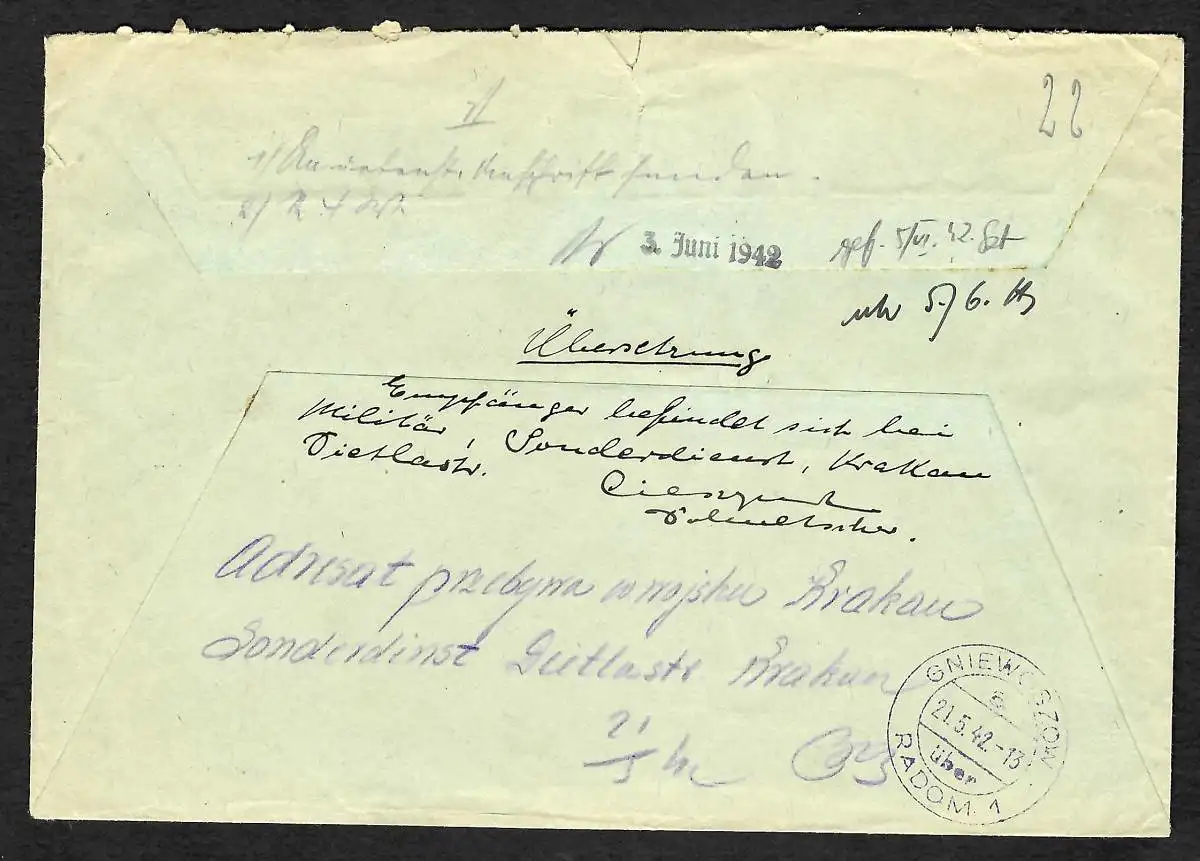 22
1) Anschrift senden.
2)
3. Juni 1942
5/VI. 42.
5/6.
Übersetzung
Empfänger befindet sich bei
Militär, Sonderdienst, Krakau
Dietlastr.
Dolmetscher.
Adresat przebywa w wojsku Krakau
Sonderdinst Dietlastr Krakau
21/5 42
GNIEWOSZOW
a
21.5.42.-13
über
RADOM 1